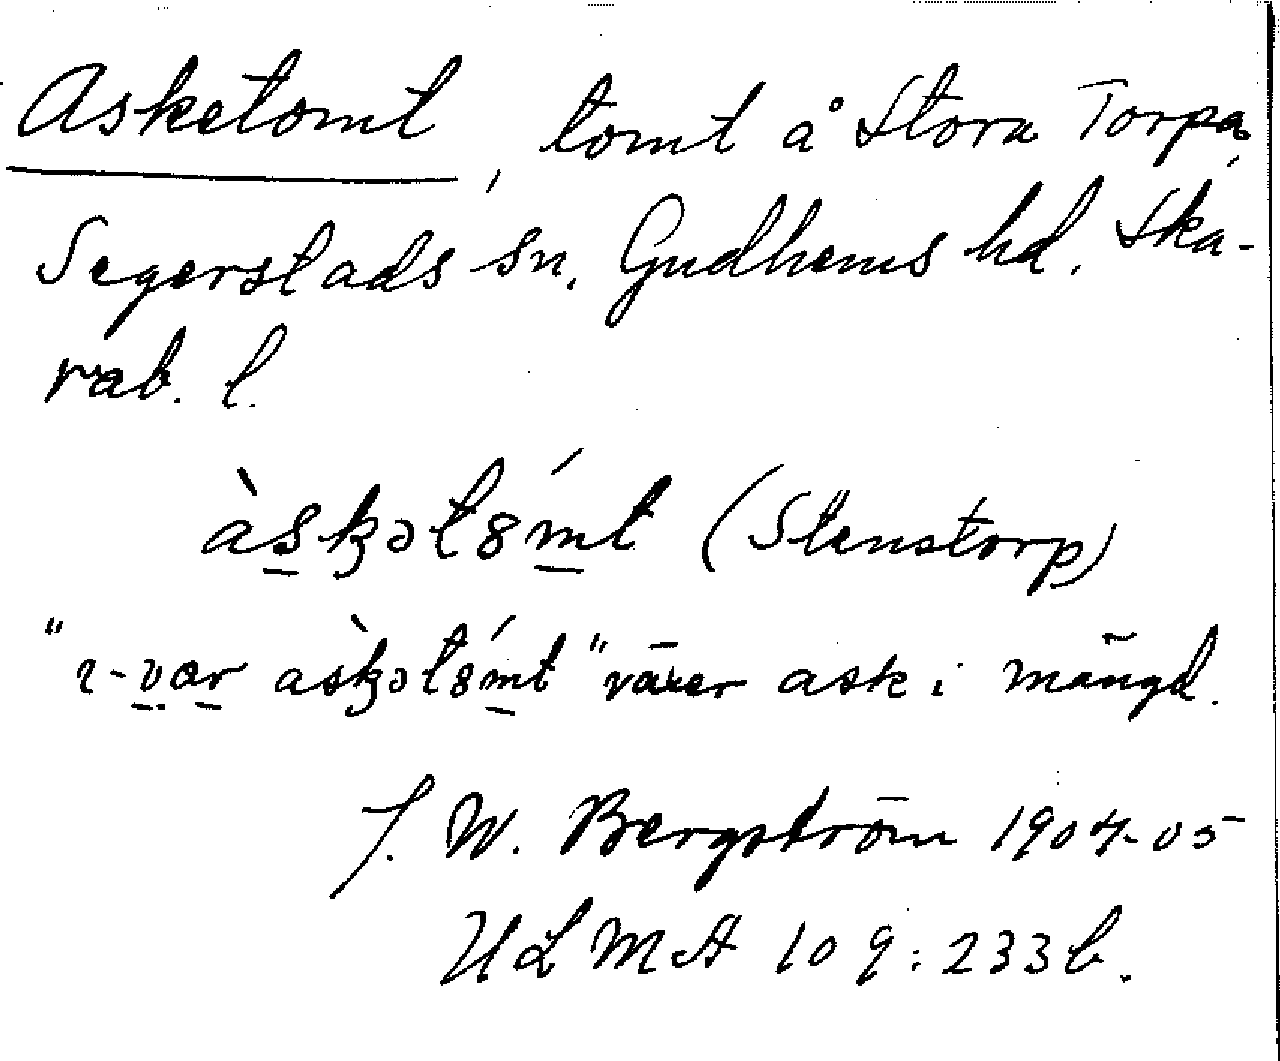 Asketomt, tomt å Stora Torpa,
Segerstads sn. Gudhems hd. Ska-
rab. l.
àskətȣ́mt (Stenstorp)
"ı-var àskətȣ́mt" växer ask i mängd.
J. W. Bergström 1904-05
ULMA 109:233b.